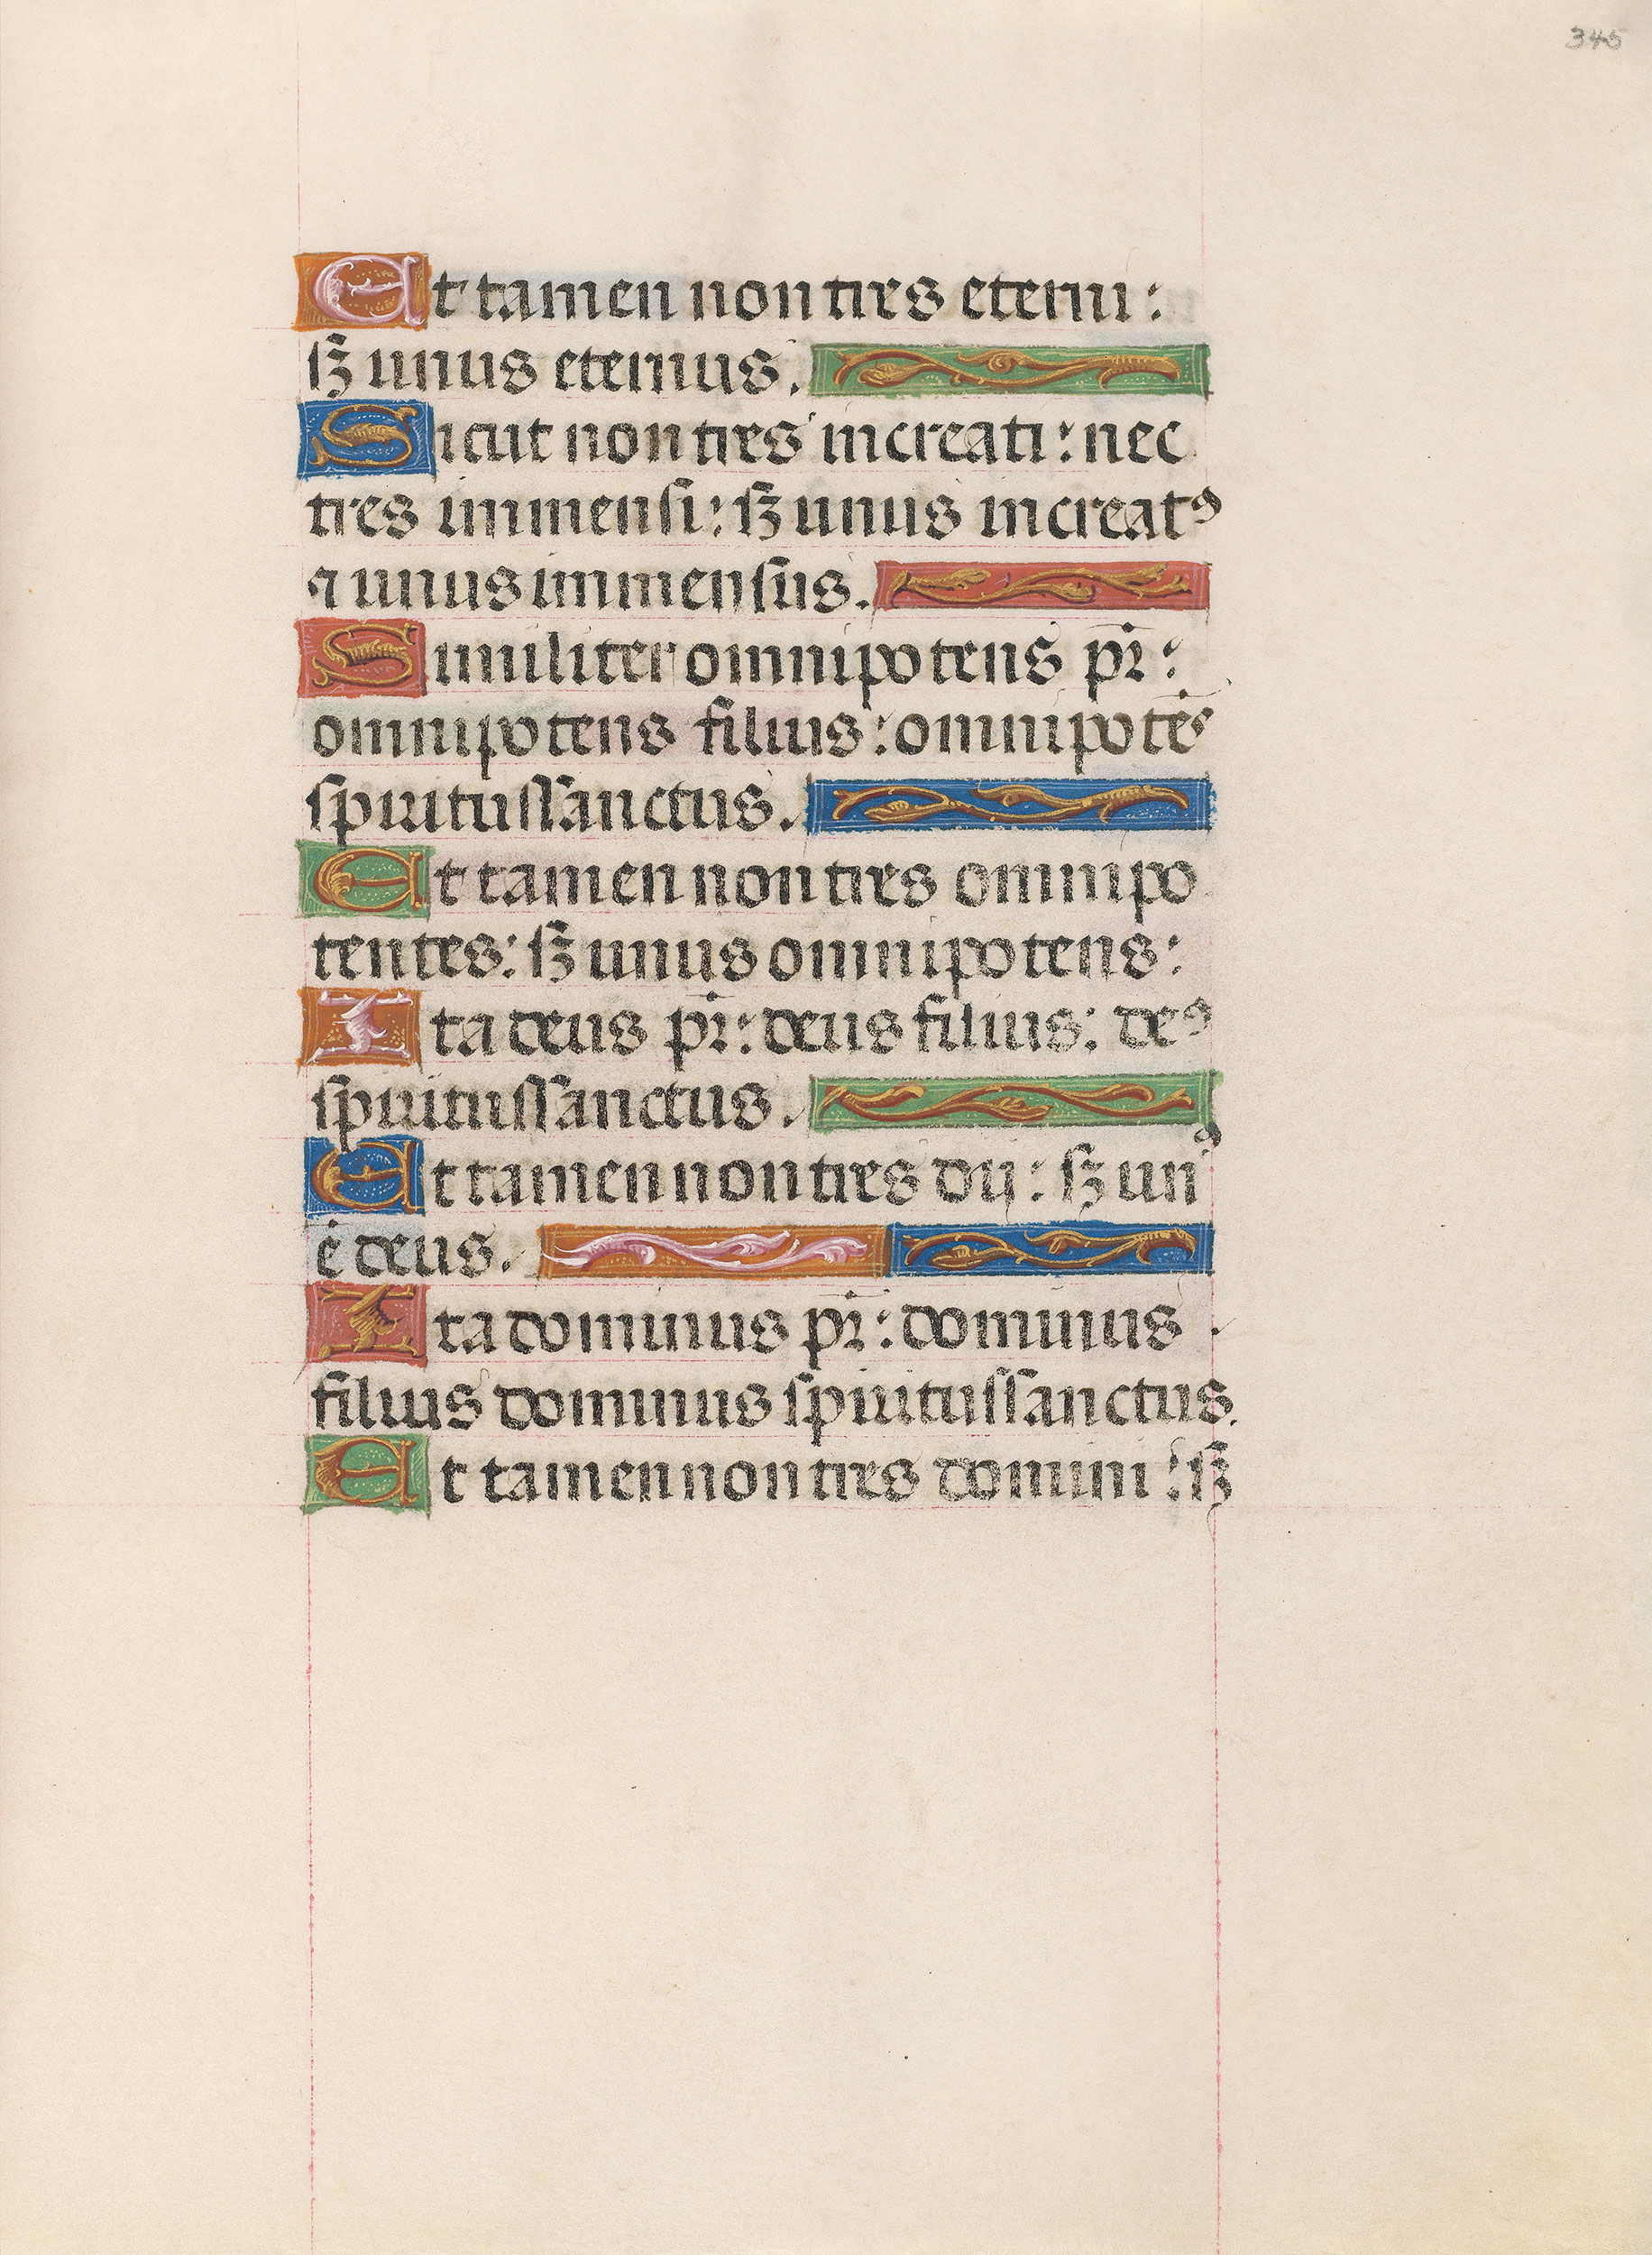 345
Et tamen non tres eterni:
sꝫ unus eternus.
Sicut non tres increati: nec
tres immensi: sꝫ unus increatꝰ
⁊ unus immensus.
Similiter omnipotens pr̄:
omnipotens filius: omnipotēs
spiritussanctus.
Et tamen non tres omnipo
tentes: sꝫ unus omnipotens:
Ita deus pr̄: deus filius: deꝰ
spiritussanctus.
Et tamen non tres dij: sꝫ unꝰ
ē deus.
Ita dominus pr̄: dominus
filius dominus spiritussanctus.
Et tamen non tres domini: sꝫ